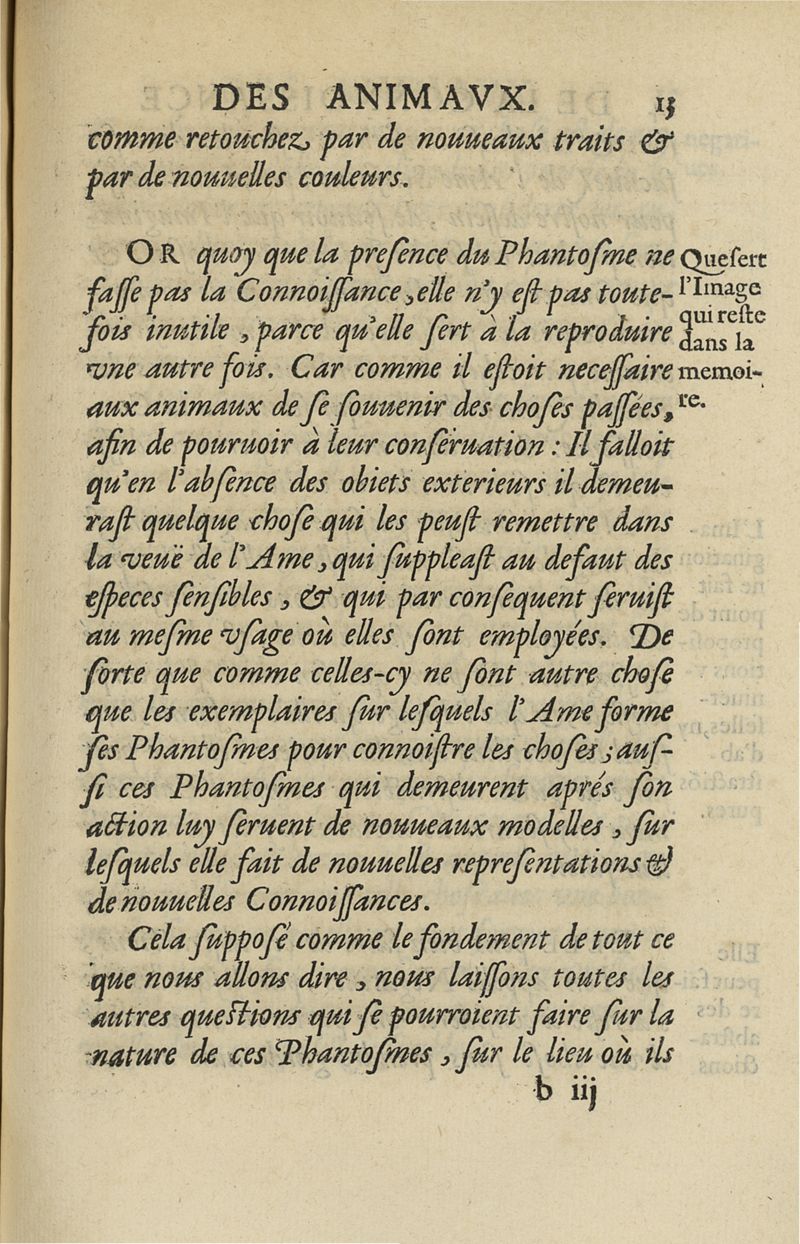 DES ANIMAVX. 13
comme retouchez par de nouueaux traits &
par de nouuelles couleurs.
OR quoy que la preſence du Phantoſme ne
faſſe pas la Connoiſſance, elle n'y eſt pas toute-
fois inutile, parce qu'elle ſert à la reproduire
vne autre fois. Car comme il eſtoit neceſſaire
aux animaux de ſe ſouuenir des choſes paſſées,
afin de pouruoir à leur conſeruation : Il falloit
qu'en l'abſence des obiets exterieurs il demeu-
raſt quelque choſe qui les peuſt remettre dans
la veuë de l'Ame, qui ſuppleaſt au defaut des
eſpeces ſenſibles, & qui par conſequent ſeruiſt
au meſme vſage où elles ſont employées. De
ſorte que comme celles-cy ne ſont autre choſe
que les exemplaires ſur leſquels l'Ame forme
ſes Phantoſmes pour connoiſtre les choſes ; auſ-
ſi ces Phantoſmes qui demeurent aprés ſon
action luy ſeruent de nouueaux modelles, ſur
leſquels elle fait de nouuelles repreſentations &
de nouuelles Connoiſſances.
Cela ſuppoſé comme le fondement de tout ce
que nous allons dire, nous laiſſons toutes les
autres queſtions qui ſe pourroient faire ſur la
nature de ces Phantoſmes, ſur le lieu où ils
b iij
Que ſert
l'Image
qui reſte
dans la
memoi-
re.